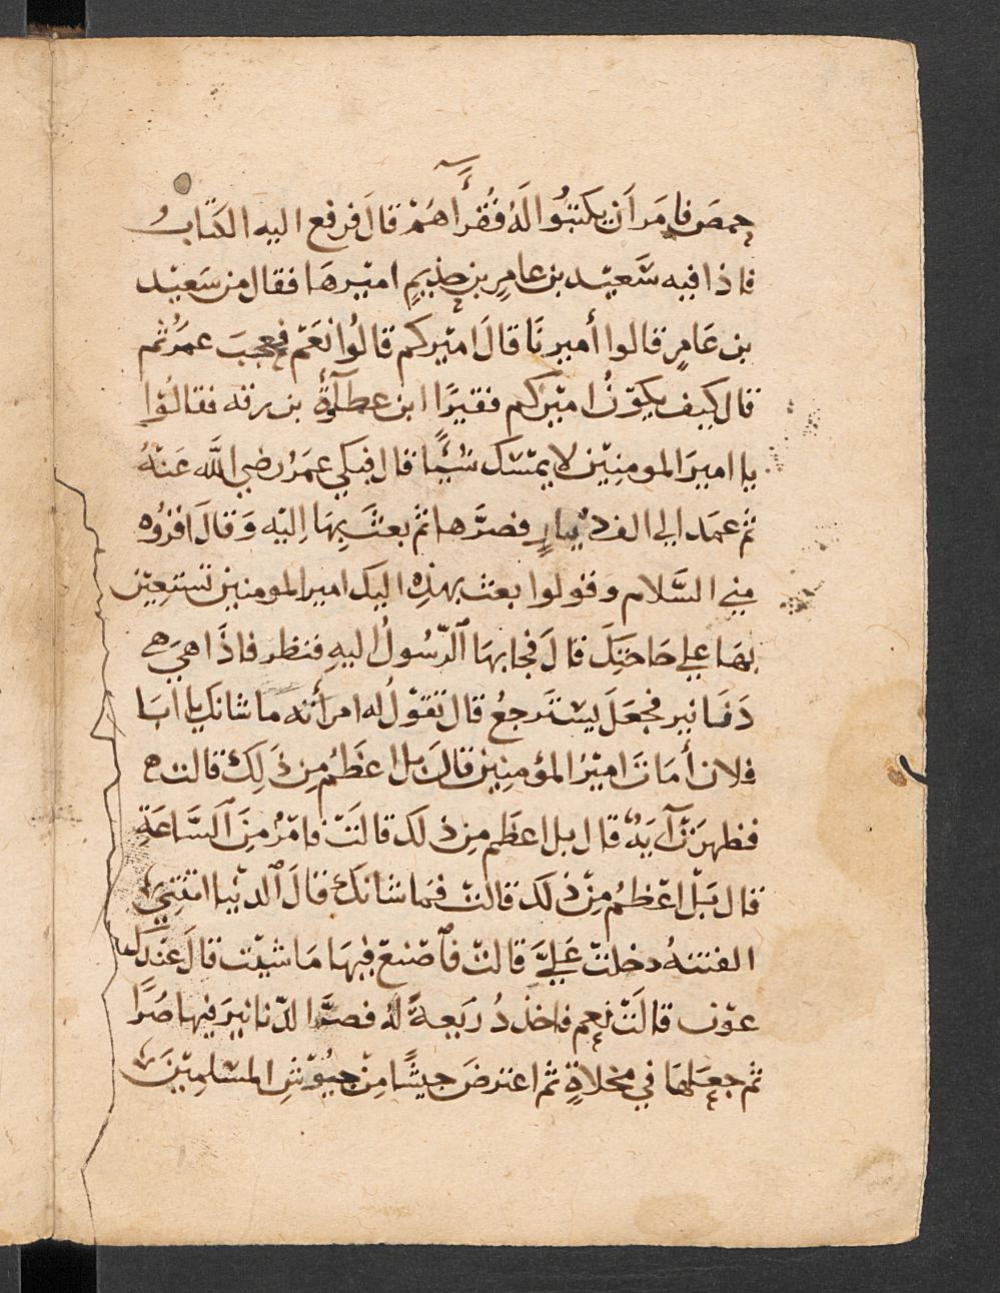 حمصَ فامَر اَن يكتبُوا لَهُ فُقرأهَمْ قالَ فرفع اليه الكتَابُ
فاذا فيه سَعيْد بن عامرٍ بن حذيمٍ اميْرهَا فقال من سَعيْد
بن عَامرٍ قالوا أميرنَا قالَ اميْركم قالُوا نعَمْ فعجبَ عمَرُ ثم
قال كيف يكوْنُ اميْركم فقيرًا اين عطآؤهُ بن رزقه فقالوْا
يا اميرَ المومنِيْن لا يمْسك شيْئًا قال فبكي عمَرُ رضي اللَّه عَنْهُ
ثم عمَد الي الف ديْنارٍ فصرَّها ثم بعثَ بِهَا اِليْه وَقالَ اقروُه
مِني السَّلام وقولوا بعث بهذِه اليك امير المومنين تستعِيْن
بهَا علي حَاجَتِكَ قالَ فجا بهَا ٱلرّسُولُ اليهِ فنظر فاذَا هيَ
دَنَانير فجعَلَ يسْتَرجعُ قال تقوْلُ له امرأته ما شانك يا ابَا
فلان أمَاتَ اميْرُ المؤمنِين قالَ بل اعظَمُ مِن ذَلِكَ قالت
فظهرَتْ آيَةٌ قال بل اعظَم مِن ذلك قالَتْ فامْرٌ مِنَ ٱلسَّاعَةِ
قال بَلْ اعْظمُ مِنْ ذلك قالتْ فمَا شَانكَ قالَ ٱلدنْيا اتتْنِي
الفتنهُ دخلتْ عَليَّ قالتْ فَٱصْنعْ فِيهَا مَا شيْت قالَ عنْدكِ
عوْن قالَتْ نعم فاخذ دُرَيعةً لهُ فصرَّ الدّنانيرَ فيها صُرًا
ثم جعَلهَا في مخلاةٍ ثم اعترضَ جيشًا مِنْ جيُوْشِ المسْلمِيْنَ